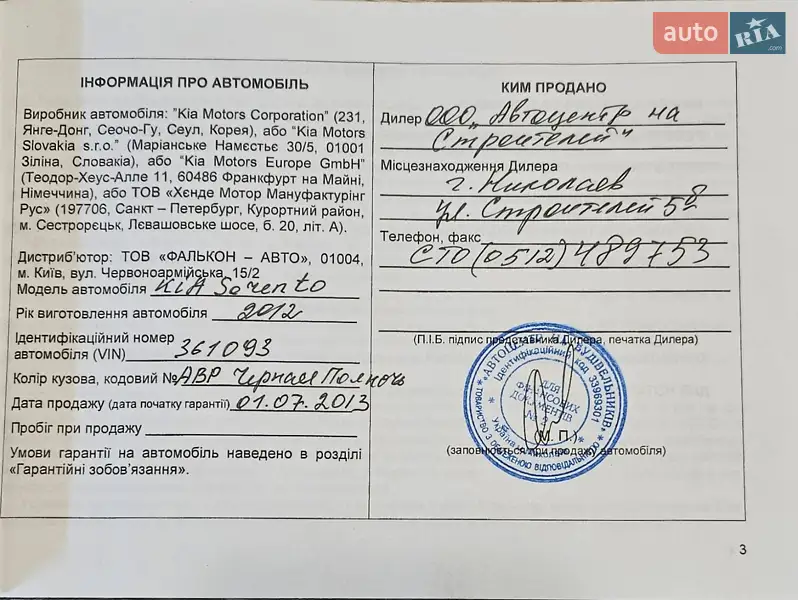 auto RIA .com
ІНФОРМАЦІЯ ПРО АВТОМОБІЛЬ
Виробник автомобіля: "Kia Motors Corporation" (231,
Янге-Донг, Сеочо-Гу, Сеул, Корея), або "Kia Motors
Slovakia s.r.o." (Маріанське Намєстьє 30/5, 01001
Зіліна, Словакія), або "Kia Motors Europe GmbH"
(Теодор-Хеус-Алле 11, 60486 Франкфурт на Майні,
Німеччина), або ТОВ «Хєнде Мотор Мануфактурінг
Рус» (197706, Санкт – Петербург, Курортний район,
м. Сестрорєцьк, Лєвашовське шосе, б. 20, літ. А).
Дистриб'ютор: ТОВ «ФАЛЬКОН – АВТО», 01004,
м. Київ, вул. Червоноармійська, 15/2
Модель автомобіля KIA Sorento
Рік виготовлення автомобіля 2012
Ідентифікаційний номер
автомобіля (VIN) 361093
Колір кузова, кодовий № ABP Черная Полночь
Дата продажу (дата початку гарантії) 01.07.2013
Пробіг при продажу
Умови гарантії на автомобіль наведено в розділі
«Гарантійні зобов'язання».
КИМ ПРОДАНО
Дилер ООО „Автоцентр на
Строителей"
Місцезнаходження Дилера
г. Николаев
ул. Строителей 5
Телефон, факс
СТО (0512) 489753
(П.І.Б. підпис представника Дилера, печатка Дилера)
"АВТОЦЕНТР НА БУДІВЕЛЬНИКІВ"
Ідентифікаційний код 33969301
ДЛЯ
ФІНАНСОВИХ
ДОКУМЕНТІВ
Україна
ТОВАРИСТВО З ОБМЕЖЕНОЮ ВІДПОВІДАЛЬНІСТЮ
(М. П.)
(заповнюється при продажу автомобіля)
3